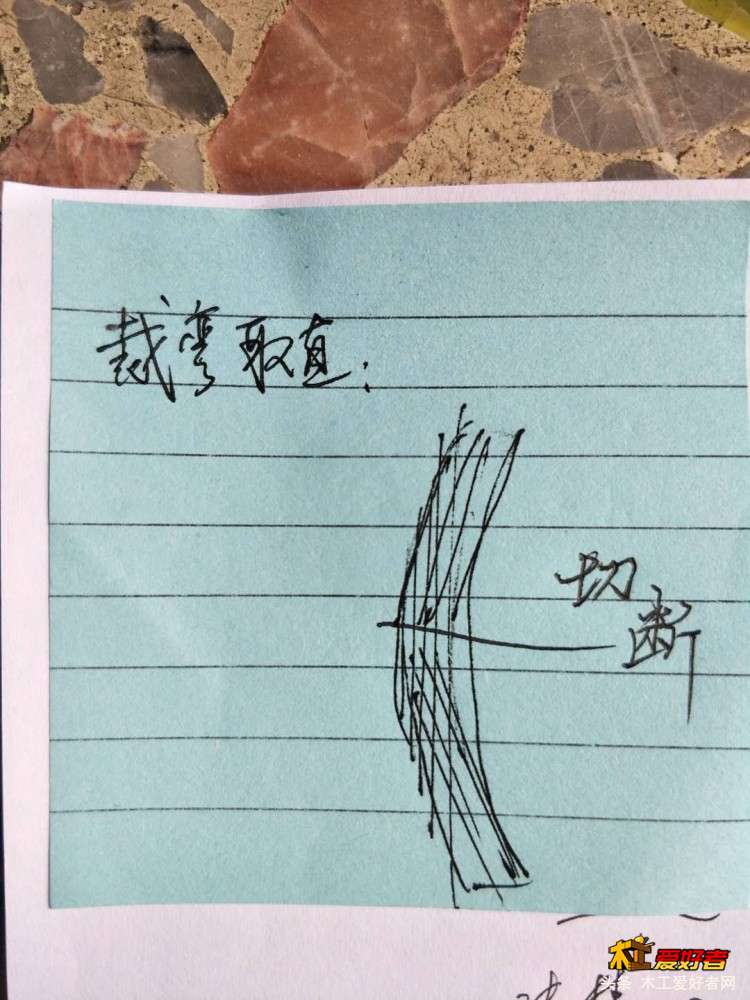 裁弯取直:
切
断
木工爱好者
头条 木工爱好者网